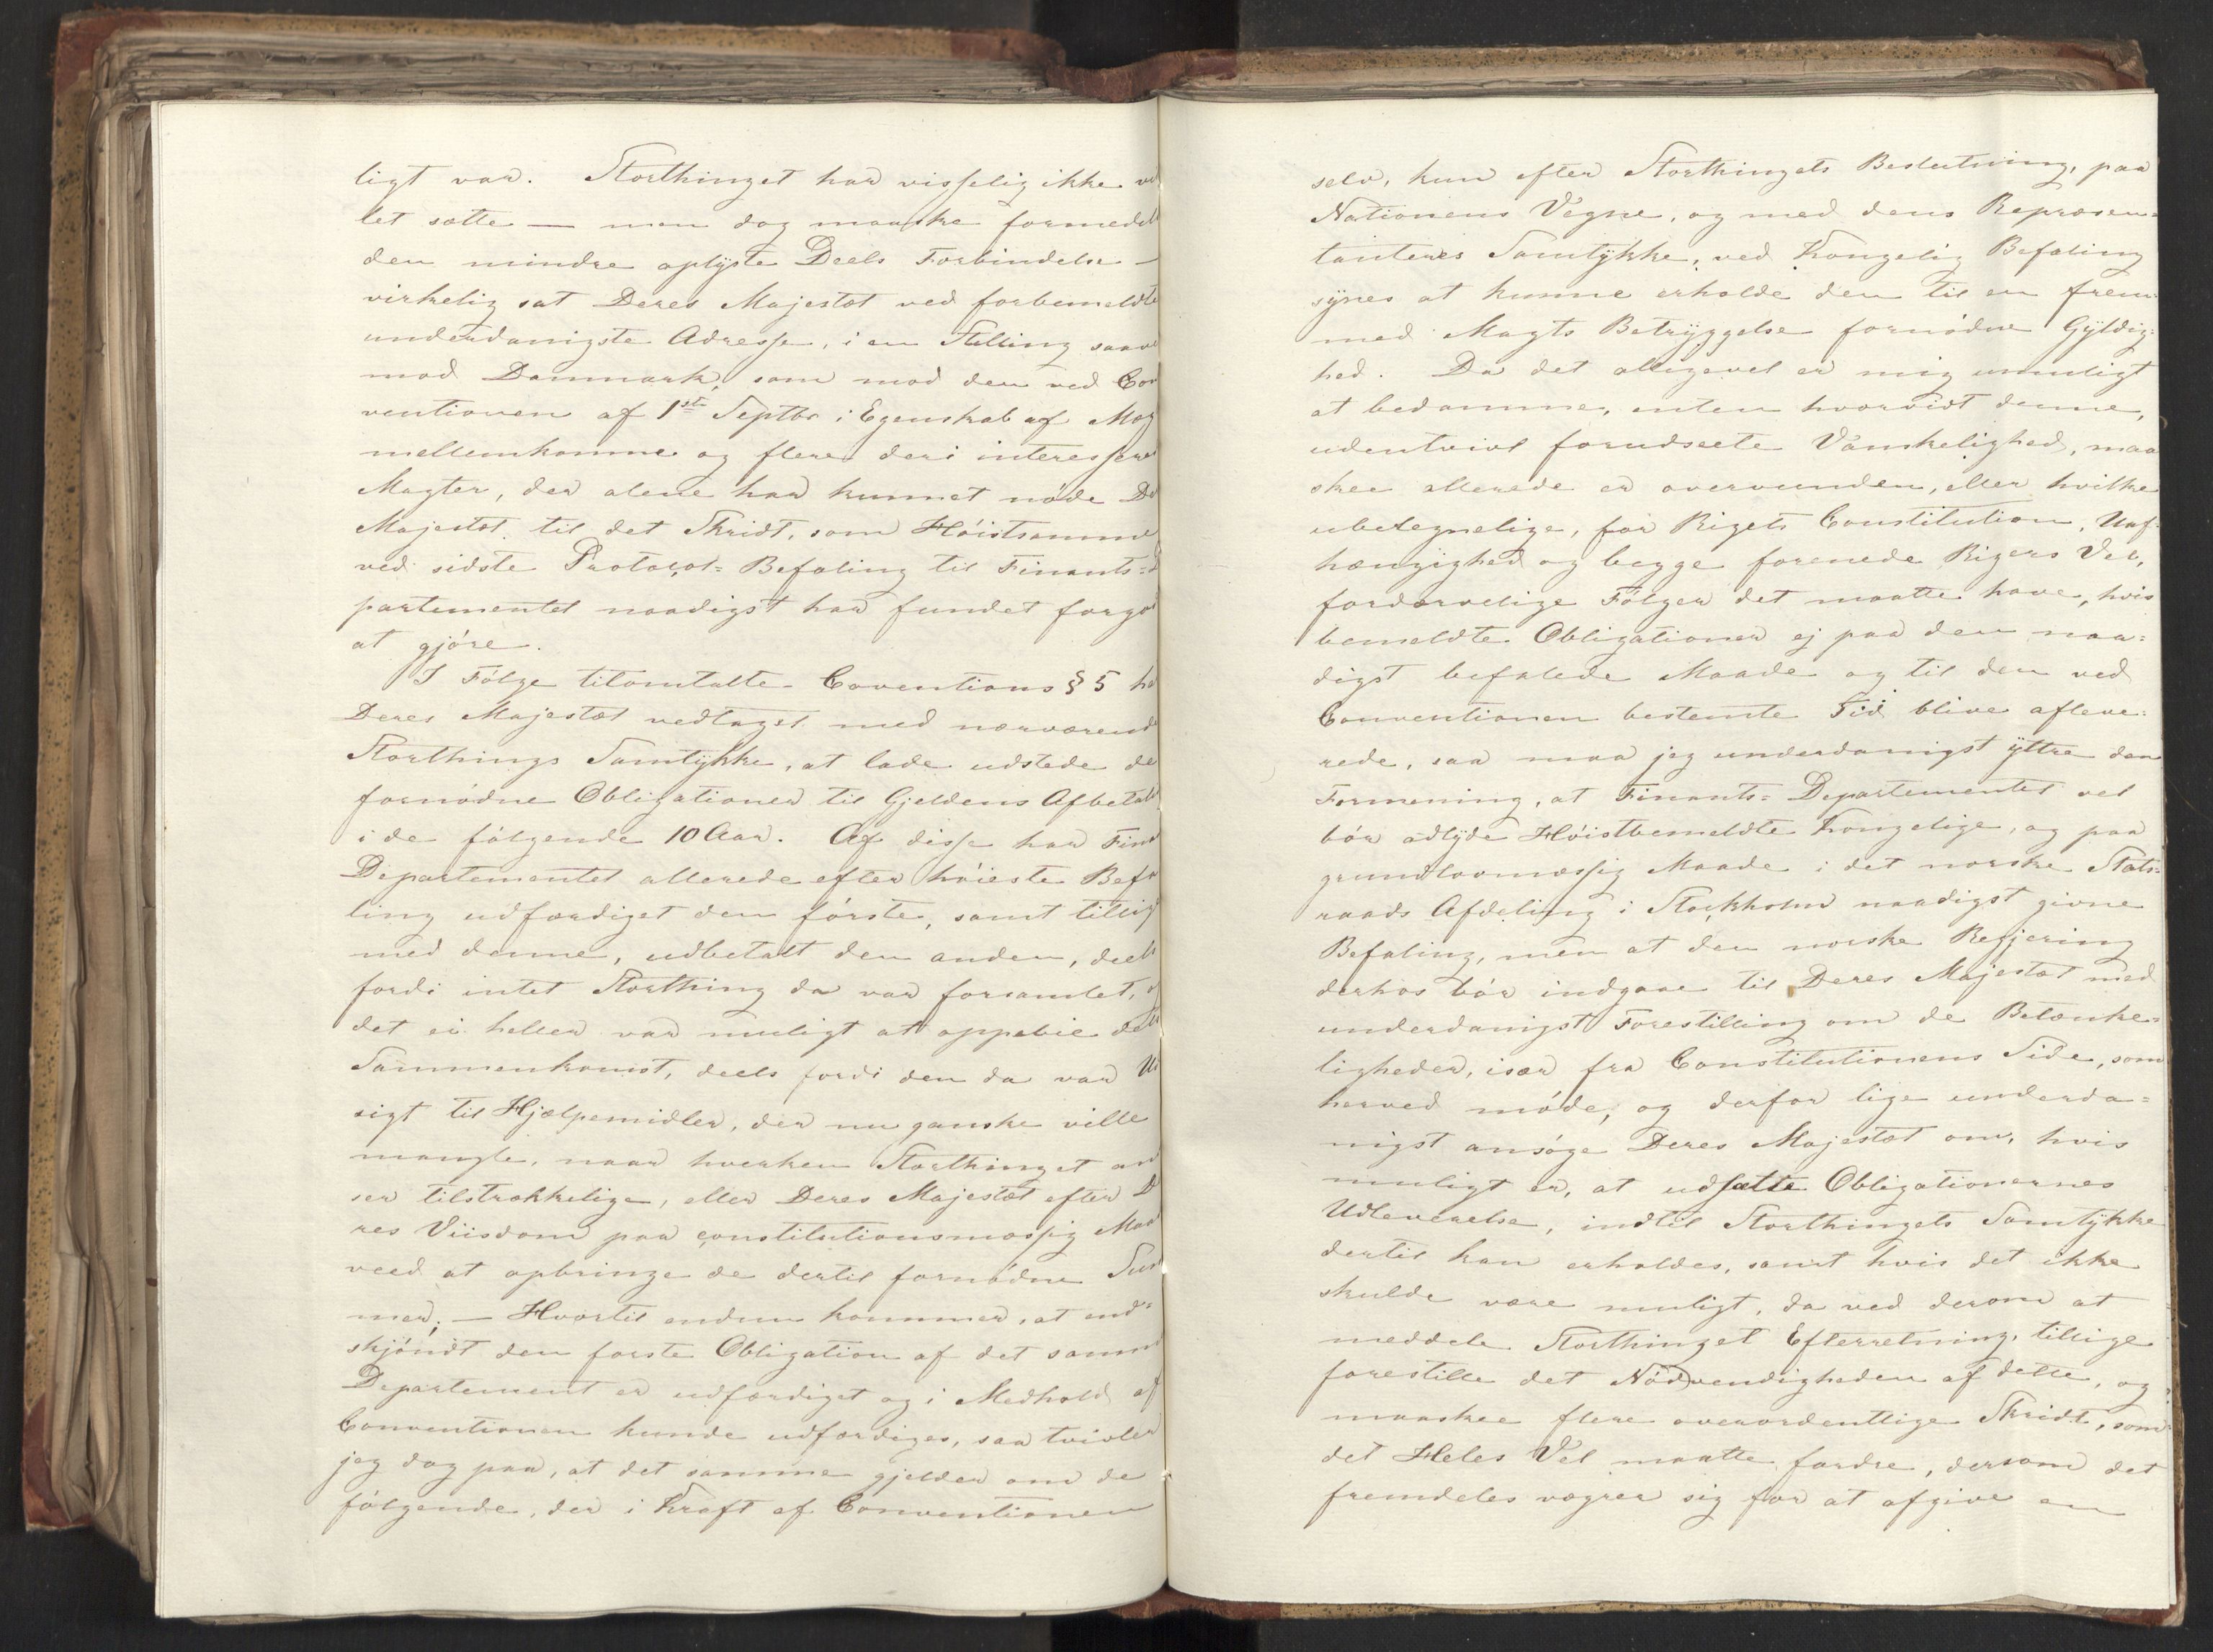 ligt var. Storthinget har visselig ikke vil
let sætte — men dog maaske formedelst
den mindre oplyste Deels Forbindelse —
virkelig sat Deres Majestæt ved forbemeldte
underdanigste Adresse, i en Stilling saavel
mod Danmark, som mod den ved Con
ventionen af 1ste Septbr i Egenskab af Mæg
mellemkomne og flere deri interessere
Magter, der alene har kunnet nöde De
Majestæt til det Skridt, som Höistsamme
ved sidste Protocol-Befaling til Finants-D
partementet naadigst har fundet forgod
at gjöre.
I Fölge tilomtalte Conventions § 5 ha
Deres Majestæt vedtaget med nærværende
Storthings Samtykke, at lade udstede de
fornödne Obligationer til Gjeldens Afbetal
i de fölgende 10 Aar. Af disse har Finan
Departementet allerede efter höieste Befa
ling udfærdiget den förste, samt tillig
med denne, udbetalt den anden, deels
fordi intet Storthing da var forsamlet, og
det ei heller var muligt at oppebie dets
Sammenkomst, deels fordi den da var Ud
sigt til Hjælpemidler, der nu ganske ville
mangle, naar hverken Storthinget an
ser tilstrækkelige, eller Deres Majestæt efter De
res Viisdom paa constitutionsmæssig Maa
veed at opbringe de dertil fornödne Sum
mer; — Hvortil endnu kommer, at end-
skjöndt den förste Obligation af det samme
Departement er udfærdiget og i Medhold af
Conventionen kunde udfærdiges, saa tvivler
jeg dog paa, at det samme gjelder om de
fölgende, der i Kraft af Conventionen
selv, kun efter Storthingets Beslutning, paa
Nationens Vegne, og med dens Repræsen-
tanteres Samtykke, ved Kongelig Befaling
synes at kunne erholde den til en frem-
med Magts Betryggelse fornödne Gyldig-
hed. Da det alligevel er mig umuligt
at bedømme, enten hvorvidt denne,
udentvivl forudseete Vanskelighed, maa
skee allerede er overvunden, eller hvilke
uberegnelige, for Rigets Constitution, Uaf-
hængighed og begge forenede Rigers Vel,
fordærvelige Fölger det maatte have, hvis
bemeldte Obligationer ej paa den naa-
digst befalede Maade og til den ved
Conventionen bestemte Tid blive afleve-
rede, saa maa jeg underdanigst yttre den
Formening, at Finants-Departementet vel
bör adlyde Höistbemeldte Kongelige, og paa
grundlovmæssig Maade i det norske Stats-
raads Afdeling i Stockholm naadigst givne
Befaling, men at den norske Regjering
derhos bör indgaae til Deres Majestæt med
underdanigst Forestilling om de Betænke-
ligheder, især fra Constitutionens Side, som
herved möde, og derfor lige underda-
nigst ansöge Deres Majestæt om, hvis
muligt er, at udsætte Obligationernes
Udleverelse, indtil Storthingets Samtykke
dertil kan erholdes, samt hvis det ikke
skulde være muligt, da ved derom at
meddele Storthinget Efterretning, tillige
forestille det Nödvendigheden af dette, og
maaskee flere overordentlige Skridt, som
det Heles Vel maatte fordre, dersom det
fremdeles vægrer sig for at afgive en